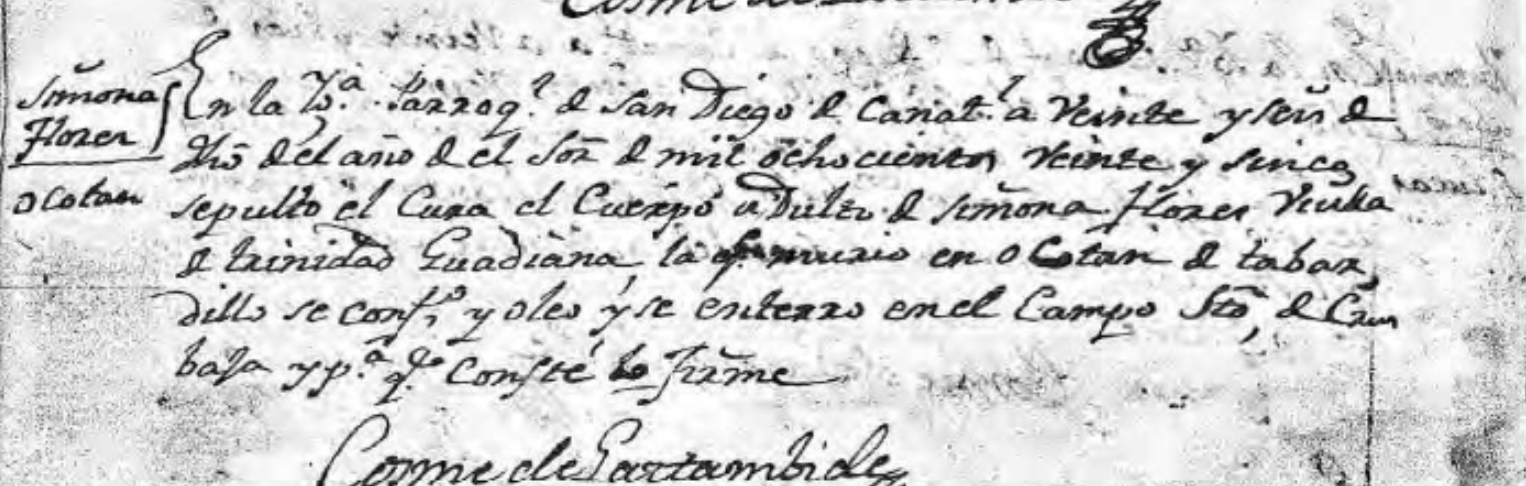 Cosme de
Simona
Florez
Ocotan
En la Yg.ª Parroq.l d San Diego d Canat.l a Veinte y seis d
dho del año d el Sor. d mil ochocientos Veinte y sinco
sepulto el Cura el Cuerpo aDulto d Simona Florez Viuda
d trinidad Guadiana, la q.e murio en Ocotan d tabar
dillo se conf.o y oleo, y se enterro en el Campo Sto, d Cruz
baja y p.ª q.e Conste lo firme
Cosme de Gaztambide